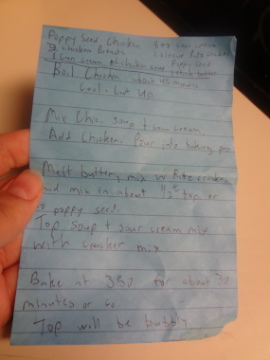 Poppy Seed Chicken 8 oz sour cream
3 chicken Breasts
1 can cream of chicken soup Poppy Seed
Boil Chicken about 45 minutes
Cool, Cut Up
Mix Chic. soup + sour cream
Add Chicken. Pour into baking pan
Melt butter, mix w/ Ritz crackers
and mix in about 1/2 tsp or
so poppy seed.
Top soup + sour cream mix
with cracker mix
Bake at 350 for about 30
minutes or so.
Top will be bubbly